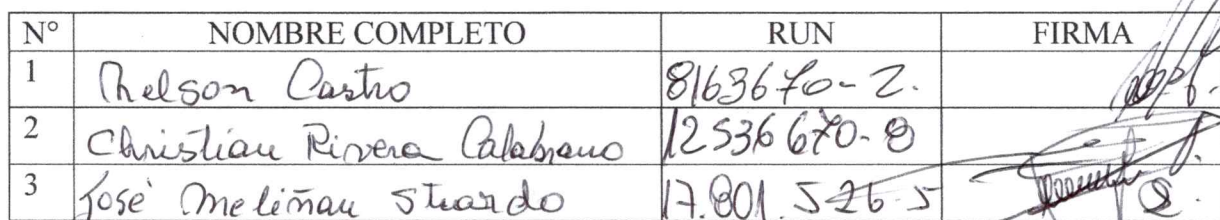 N° NOMBRE COMPLETO RUN FIRMA
1 Nelson Castro 8163670-2.
2 Christian Rivera Calabrano 12536670-8
3 José Meliñau Stuardo 17.801.526-5